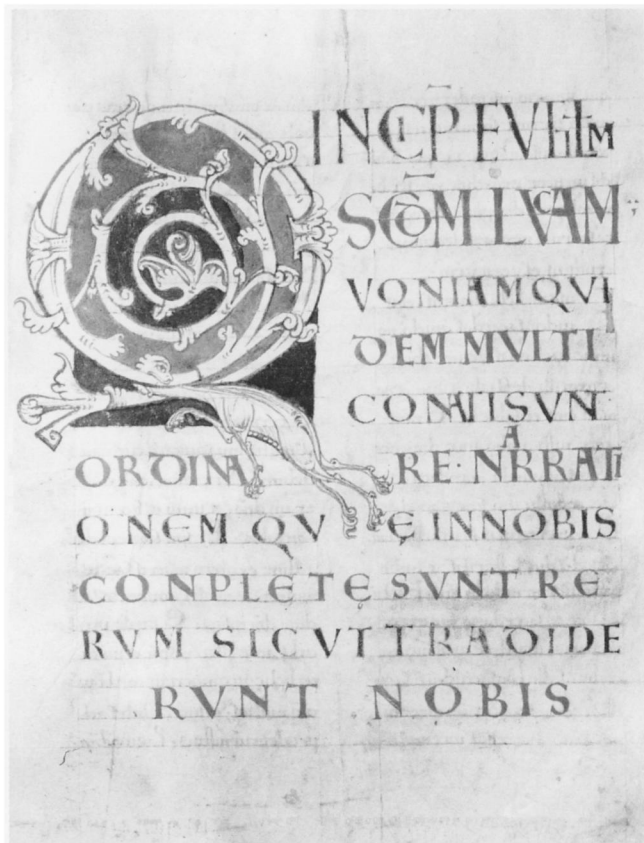 INCIP EVG̅LM
SCD̅M LVCAM
QVONIAM QVI
DEM MVLTI
CONATI SVNT
ORDINARE·NARRATI
ONEM QVĘ IN NOBIS
CONPLETĘ SVNT RE
RVM SICVT TRADIDE
RVNT NOBIS